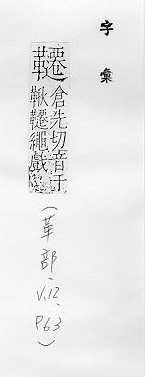 字彙
韆
倉先切音千
鞦韆繩戲
(革部.V.12.P63)